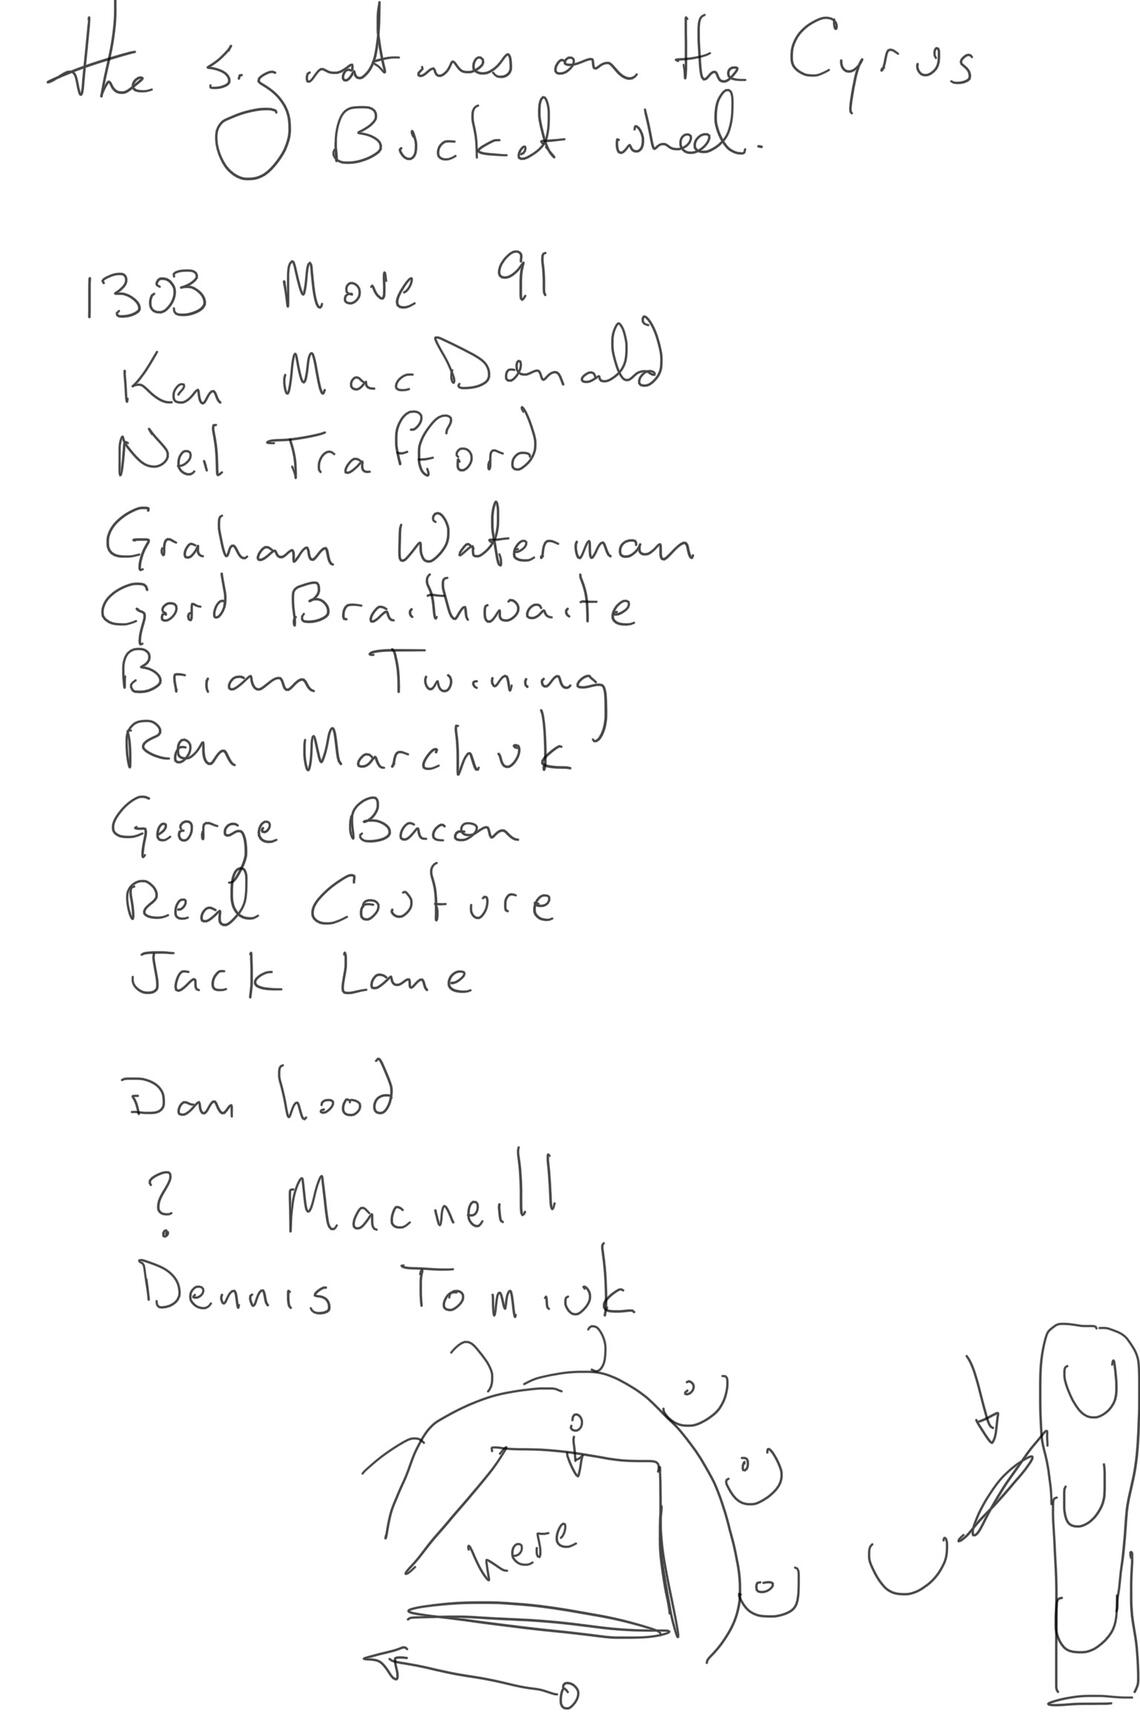 the signatures on the Cyrus
Bucket wheel.
1303 Move 91
Ken MacDonald
Neil Trafford
Graham Waterman
Gord Braithwaite
Brian Twining
Ron Marchuk
George Bacon
Real Couture
Jack Lane
Dan hood
? Macneill
Dennis Tomiuk
here